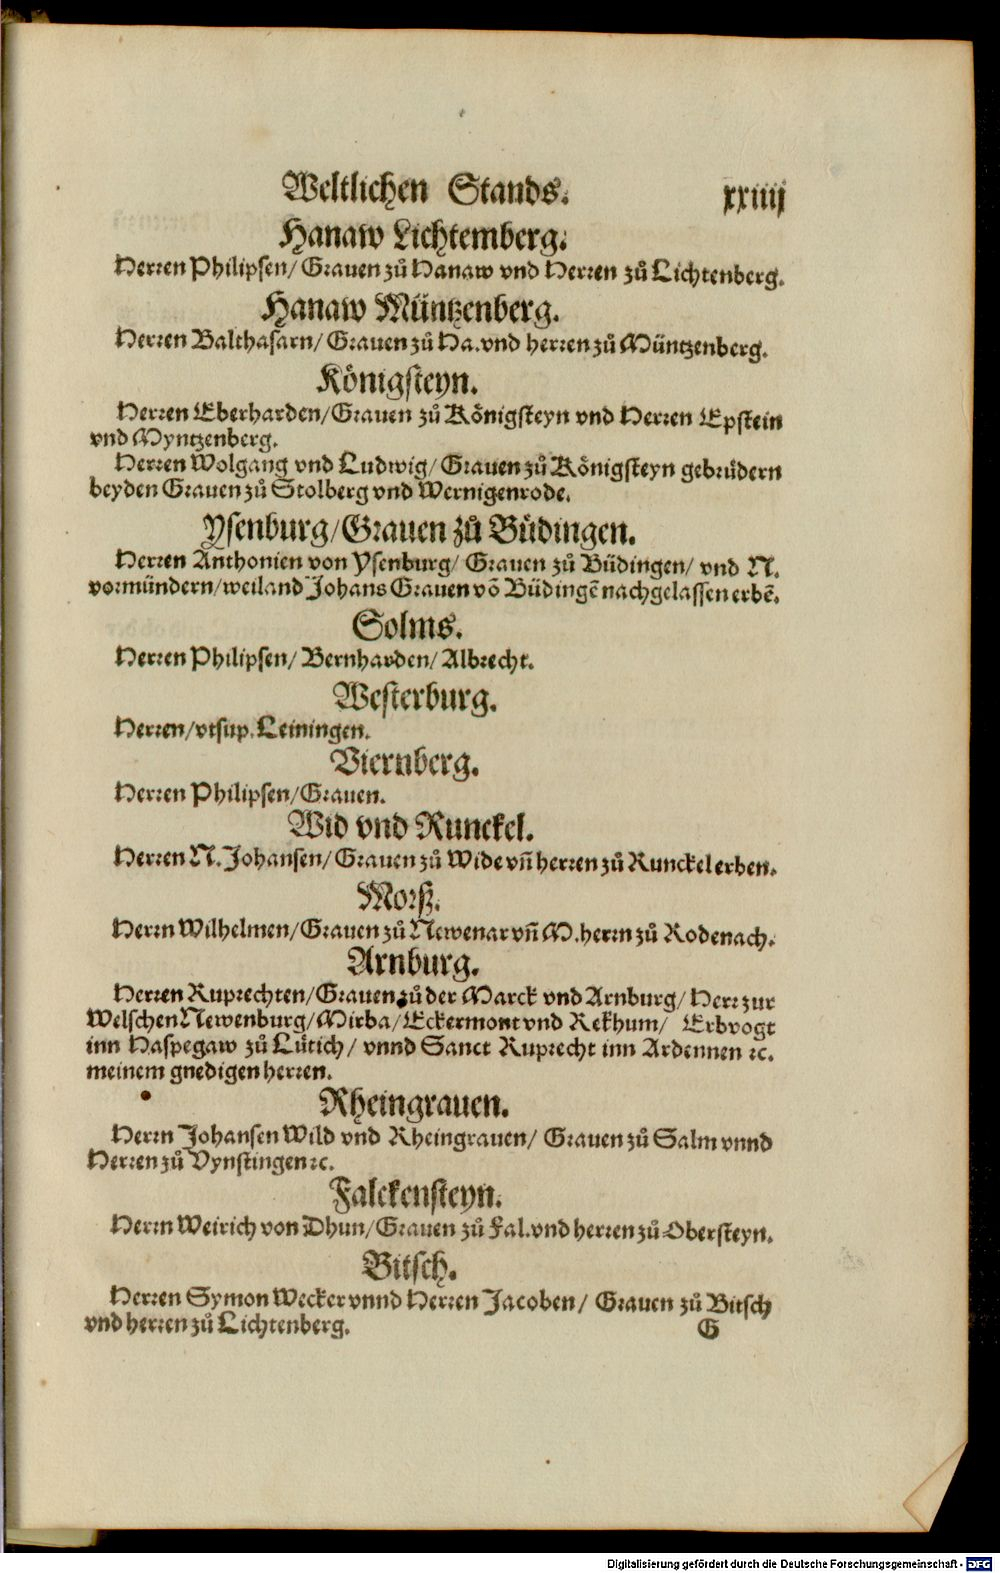 Weltlichen Stands. xxiiij
Hanaw Lichtemberg.
Herren Philipsen/ Grauen zů Hanaw vnd Herren zů Lichtenberg.
Hanaw Müntzenberg.
Herren Balthasarn/ Grauen zů Ha. vnd herren zů Müntzenberg.
Königsteyn.
Herren Eberharden/ Grauen zů Königsteyn vnd Herren Epstein
vnd Myntzenberg.
Herren Wolgang vnd Ludwig/ Grauen zů Königsteyn gebrüdern
beyden Grauen zů Stolberg vnd Wernigenrode.
Ysenburg/ Grauen zů Büdingen.
Herren Anthonien von Ysenburg/ Grauen zů Büdingen/ vnd N.
vormündern/ weiland Johans Grauen võ Büdingẽ nachgelassen erbẽ.
Solms.
Herren Philipsen/ Bernharden/ Albrecht.
Westerburg.
Herren/ vtsup. Leiningen.
Viernberg.
Herren Philipsen/ Grauen.
Wid vnd Runckel.
Herren N. Johansen/ Grauen zů Wide vñ herren zů Runckel erben.
Morß.
Herrn Wilhelmen/ Grauen zů Newenar vñ M. herrn zů Rodenach.
Arnburg.
Herren Ruprechten/ Grauen zů der Marck vnd Arnburg/ Herr zur
Welschen Newenburg/ Mirba/ Eckermont vnd Rekhum/ Erbvogt
inn Haspegaw zů Lütich/ vnnd Sanct Ruprecht inn Ardennen ꝛc.
meinem gnedigen herren.
Rheingrauen.
Herrn Johansen Wild vnd Rheingrauen/ Grauen zů Salm vnnd
Herren zů Vynstingen ꝛc.
Falckensteyn.
Herrn Weirich von Dhun/ Grauen zů Fal. vnd herren zů Obersteyn.
Bitsch.
Herren Symon Wecker vnnd Herren Jacoben/ Grauen zů Bitsch
vnd herren zů Lichtenberg. G
Digitalisierung gefördert durch die Deutsche Forschungsgemeinschaft - DFG